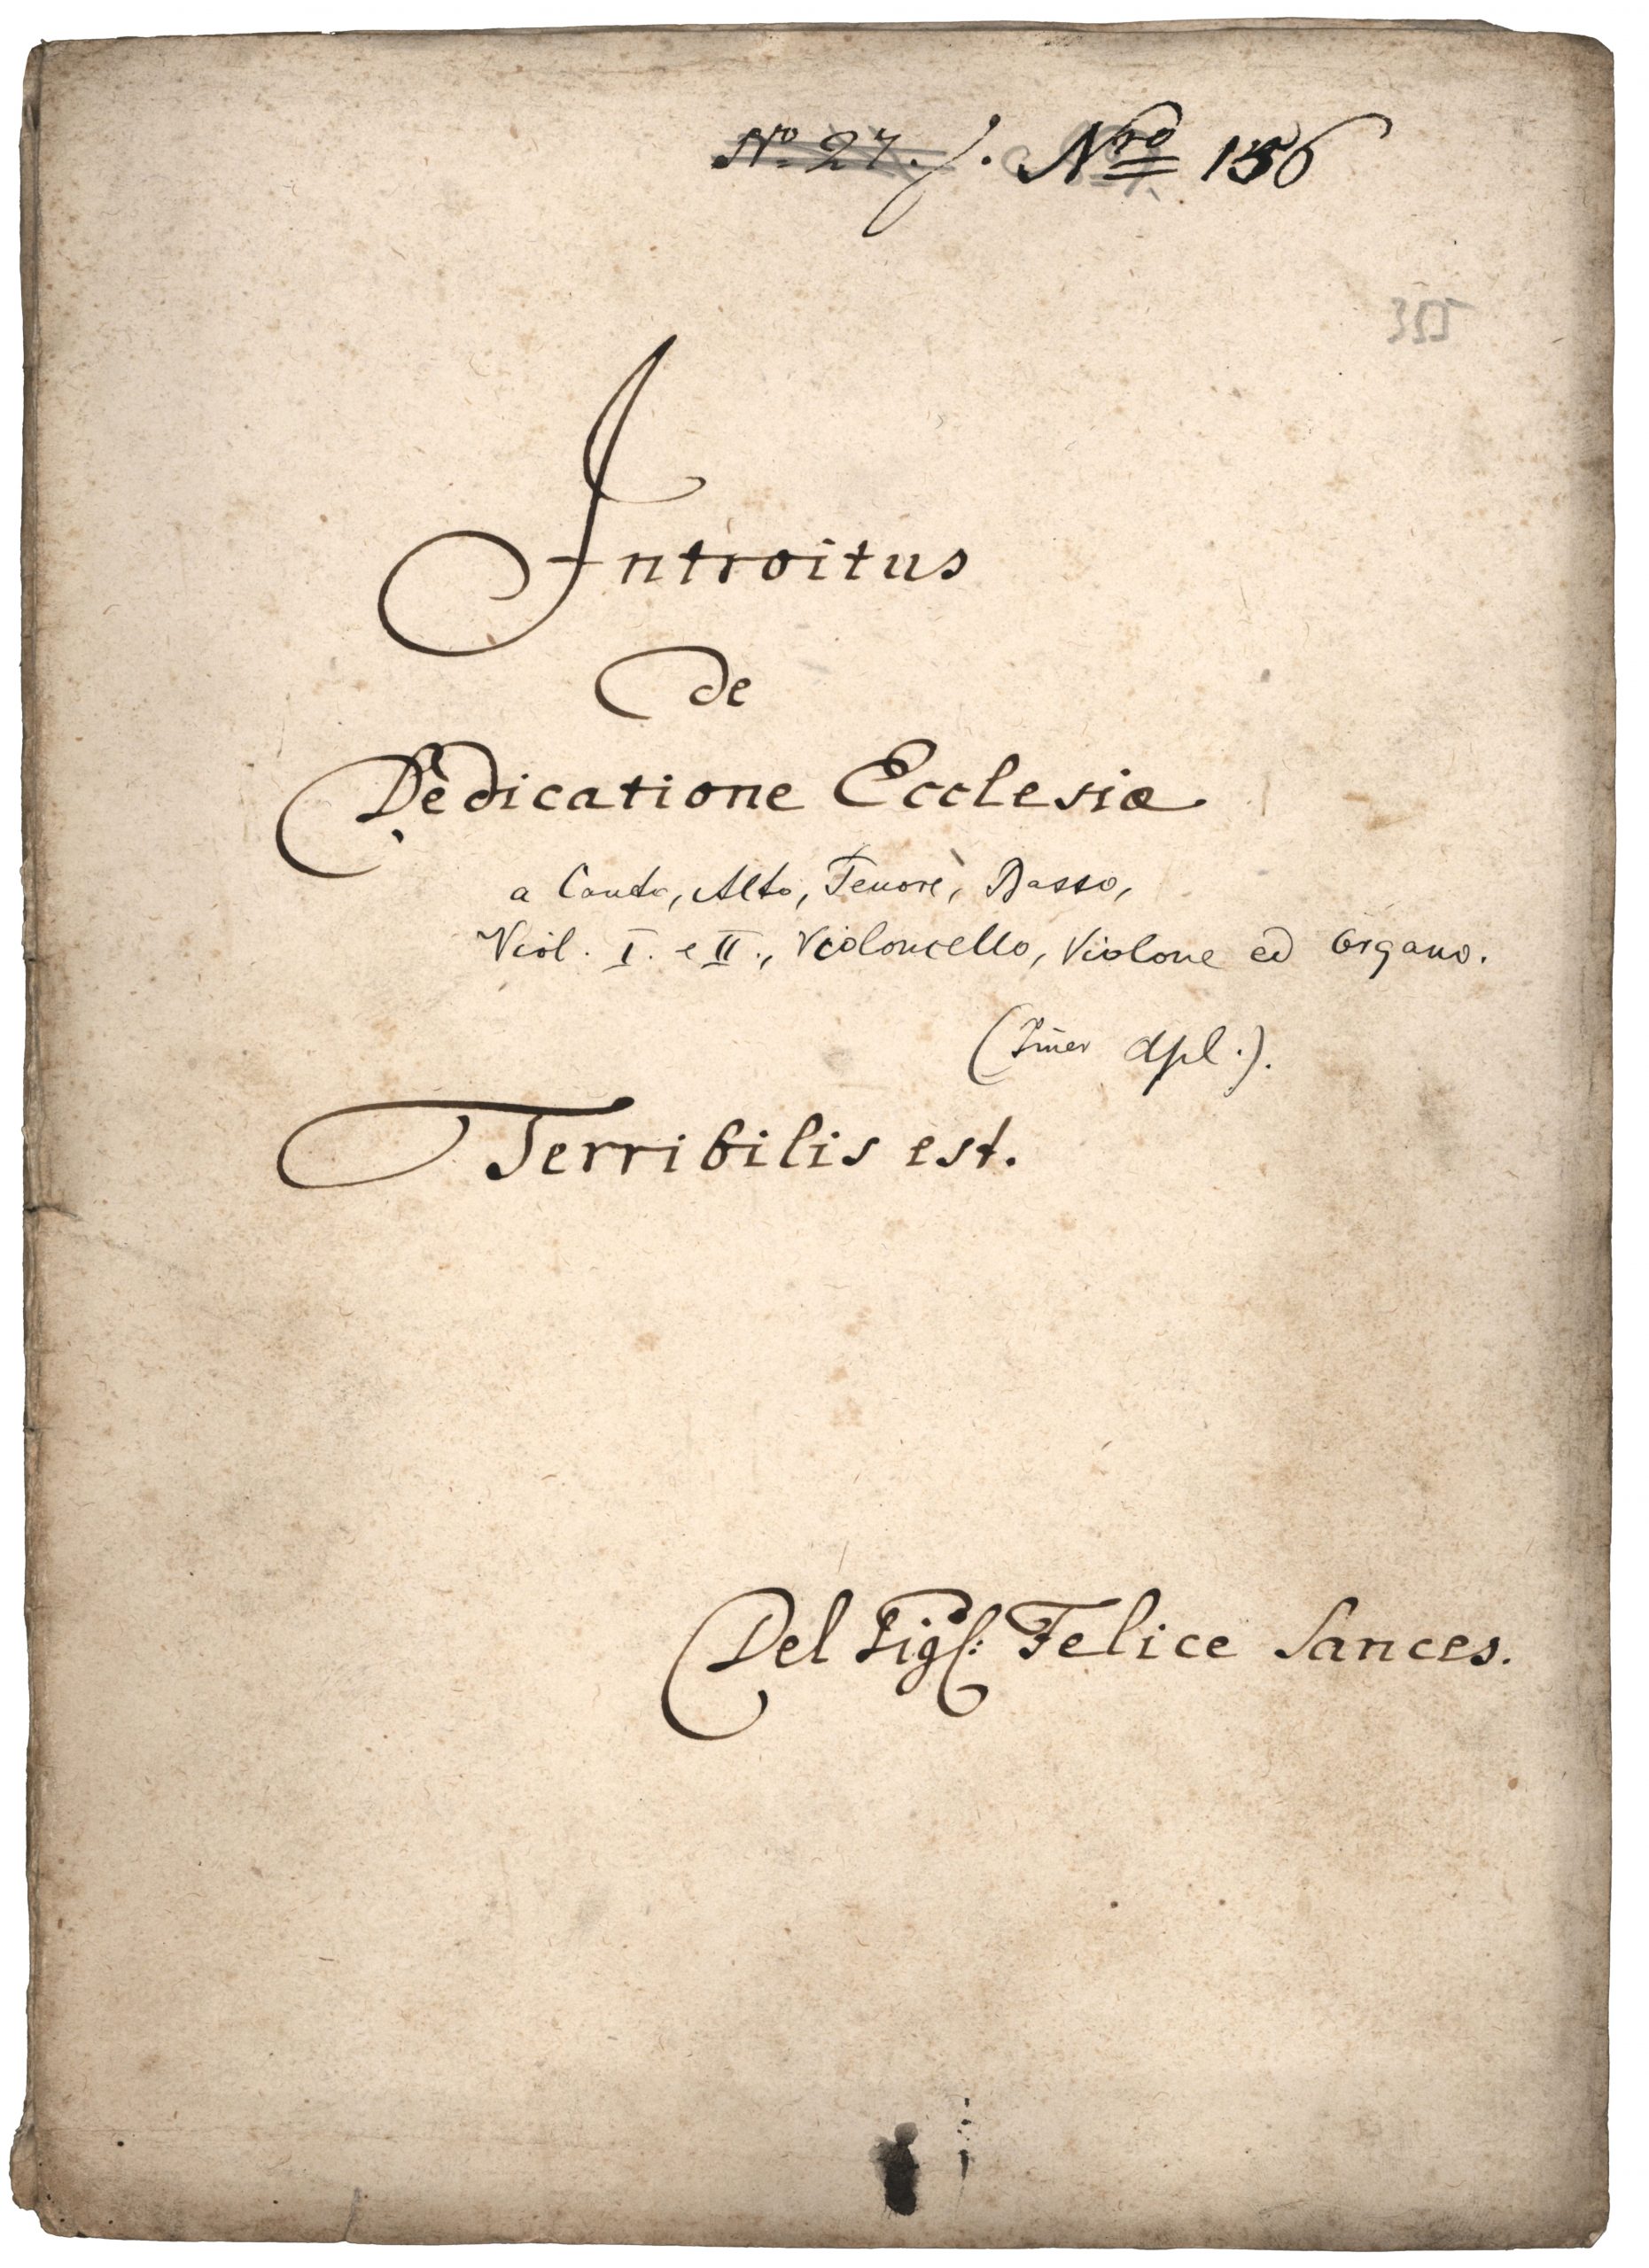 No 27. Nro 156
355
Introitus
de
Dedicatione Ecclesiæ
a Canto, Alto, Tenore, Basso,
Viol. I. e II., Violoncello, Violone ed Organo.
dpl.).
Terribilis est.
Del Sigl: Felice Sances.